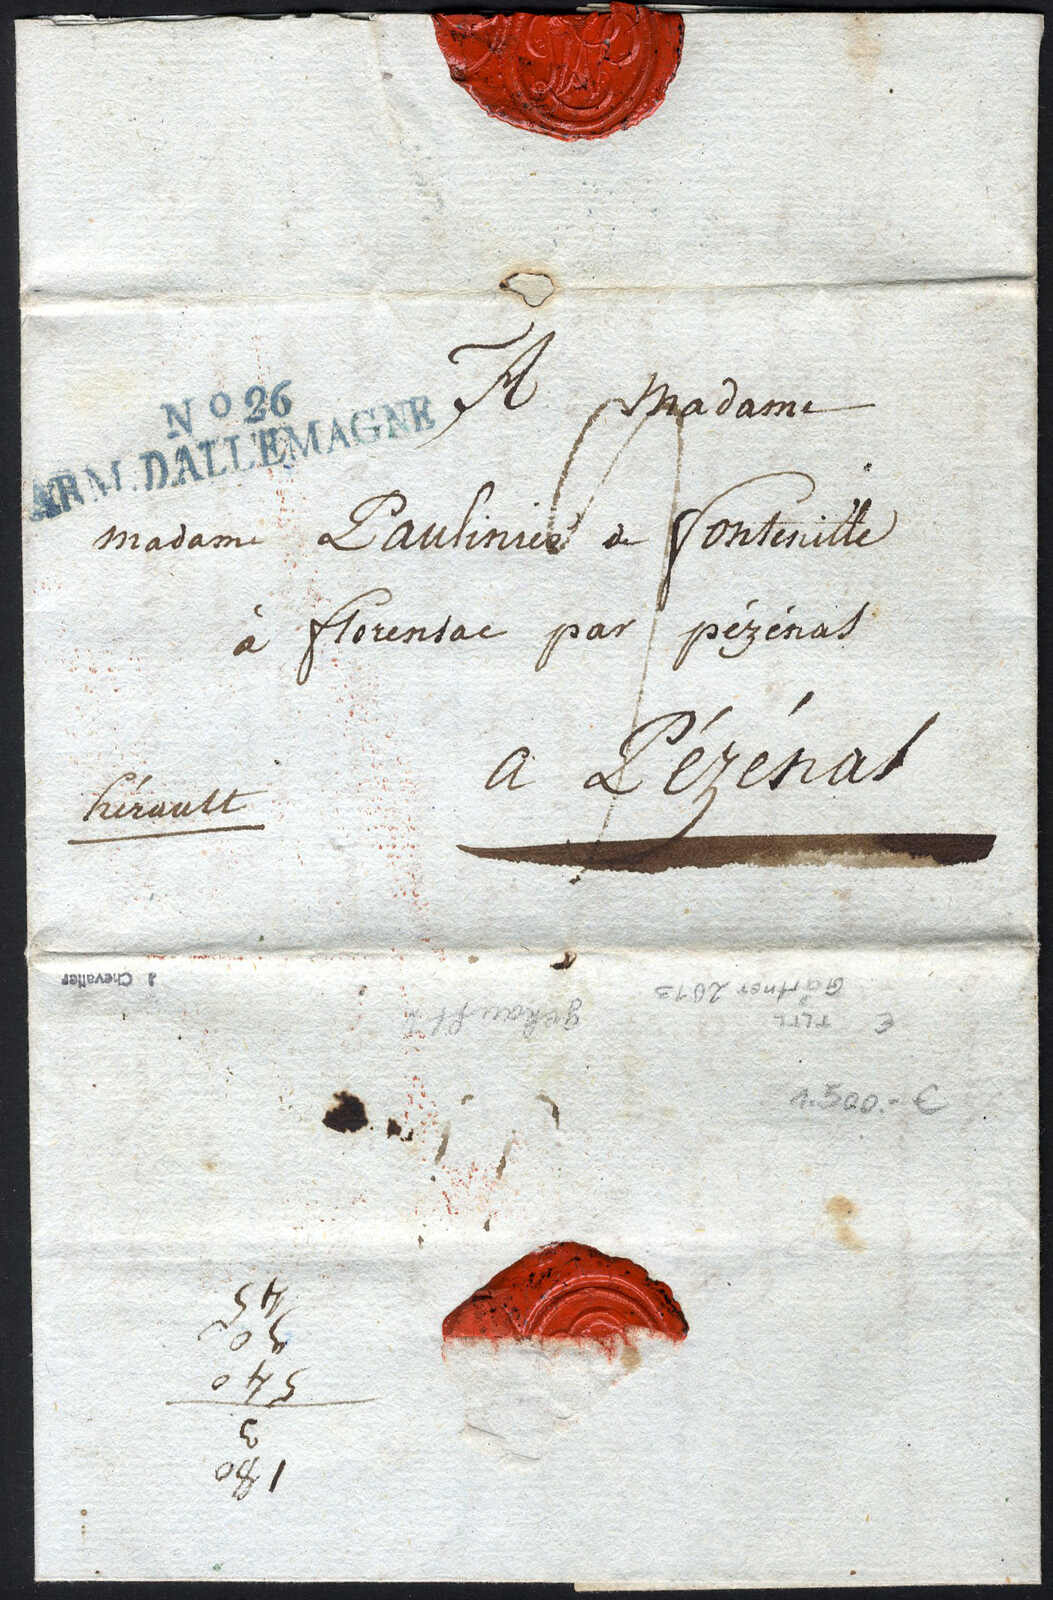 No 26
ARM. DALLEMAGNE
A Madame
Madame Paulinier de Fontenille
à florensac par pézénas
a Pézénas
hérault
Chevalier
Gärtner 2013
€
gekauft
1.500.- €
180
3
540
90
45